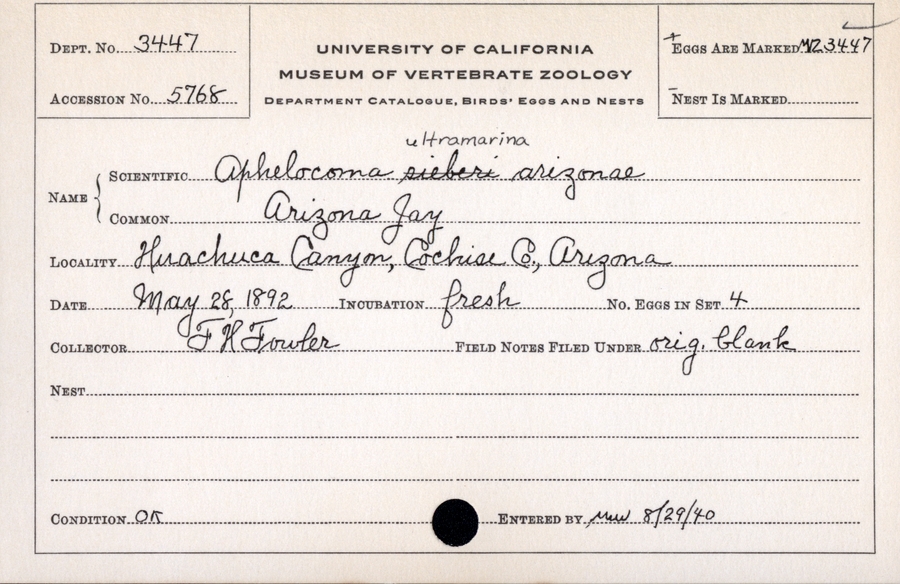 Dept. No. 3447
Accession No. 5768
UNIVERSITY OF CALIFORNIA
MUSEUM OF VERTEBRATE ZOOLOGY
Department Catalogue, Birds' Eggs and Nests
+ Eggs Are Marked MVZ3447
– Nest Is Marked
ultramarina
Name { Scientific Aphelocoma sieberi arizonae
Common Arizona Jay
Locality Huachuca Canyon, Cochise Co., Arizona
Date May 28, 1892 Incubation fresh No. Eggs in Set 4
Collector F H Fowler Field Notes Filed Under orig. blank
Nest
Condition OK Entered by 8/29/40